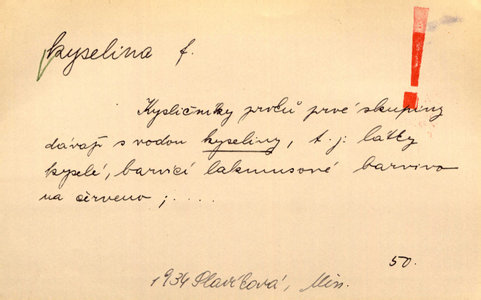 kyselina f.
Kysličníky prvků prvé skupiny
dávají s vodou kyseliny, t. j. látky
kyselé, barvící lakmusové barvivo
na červeno; ....
50.
1934 Slavíková, Min.